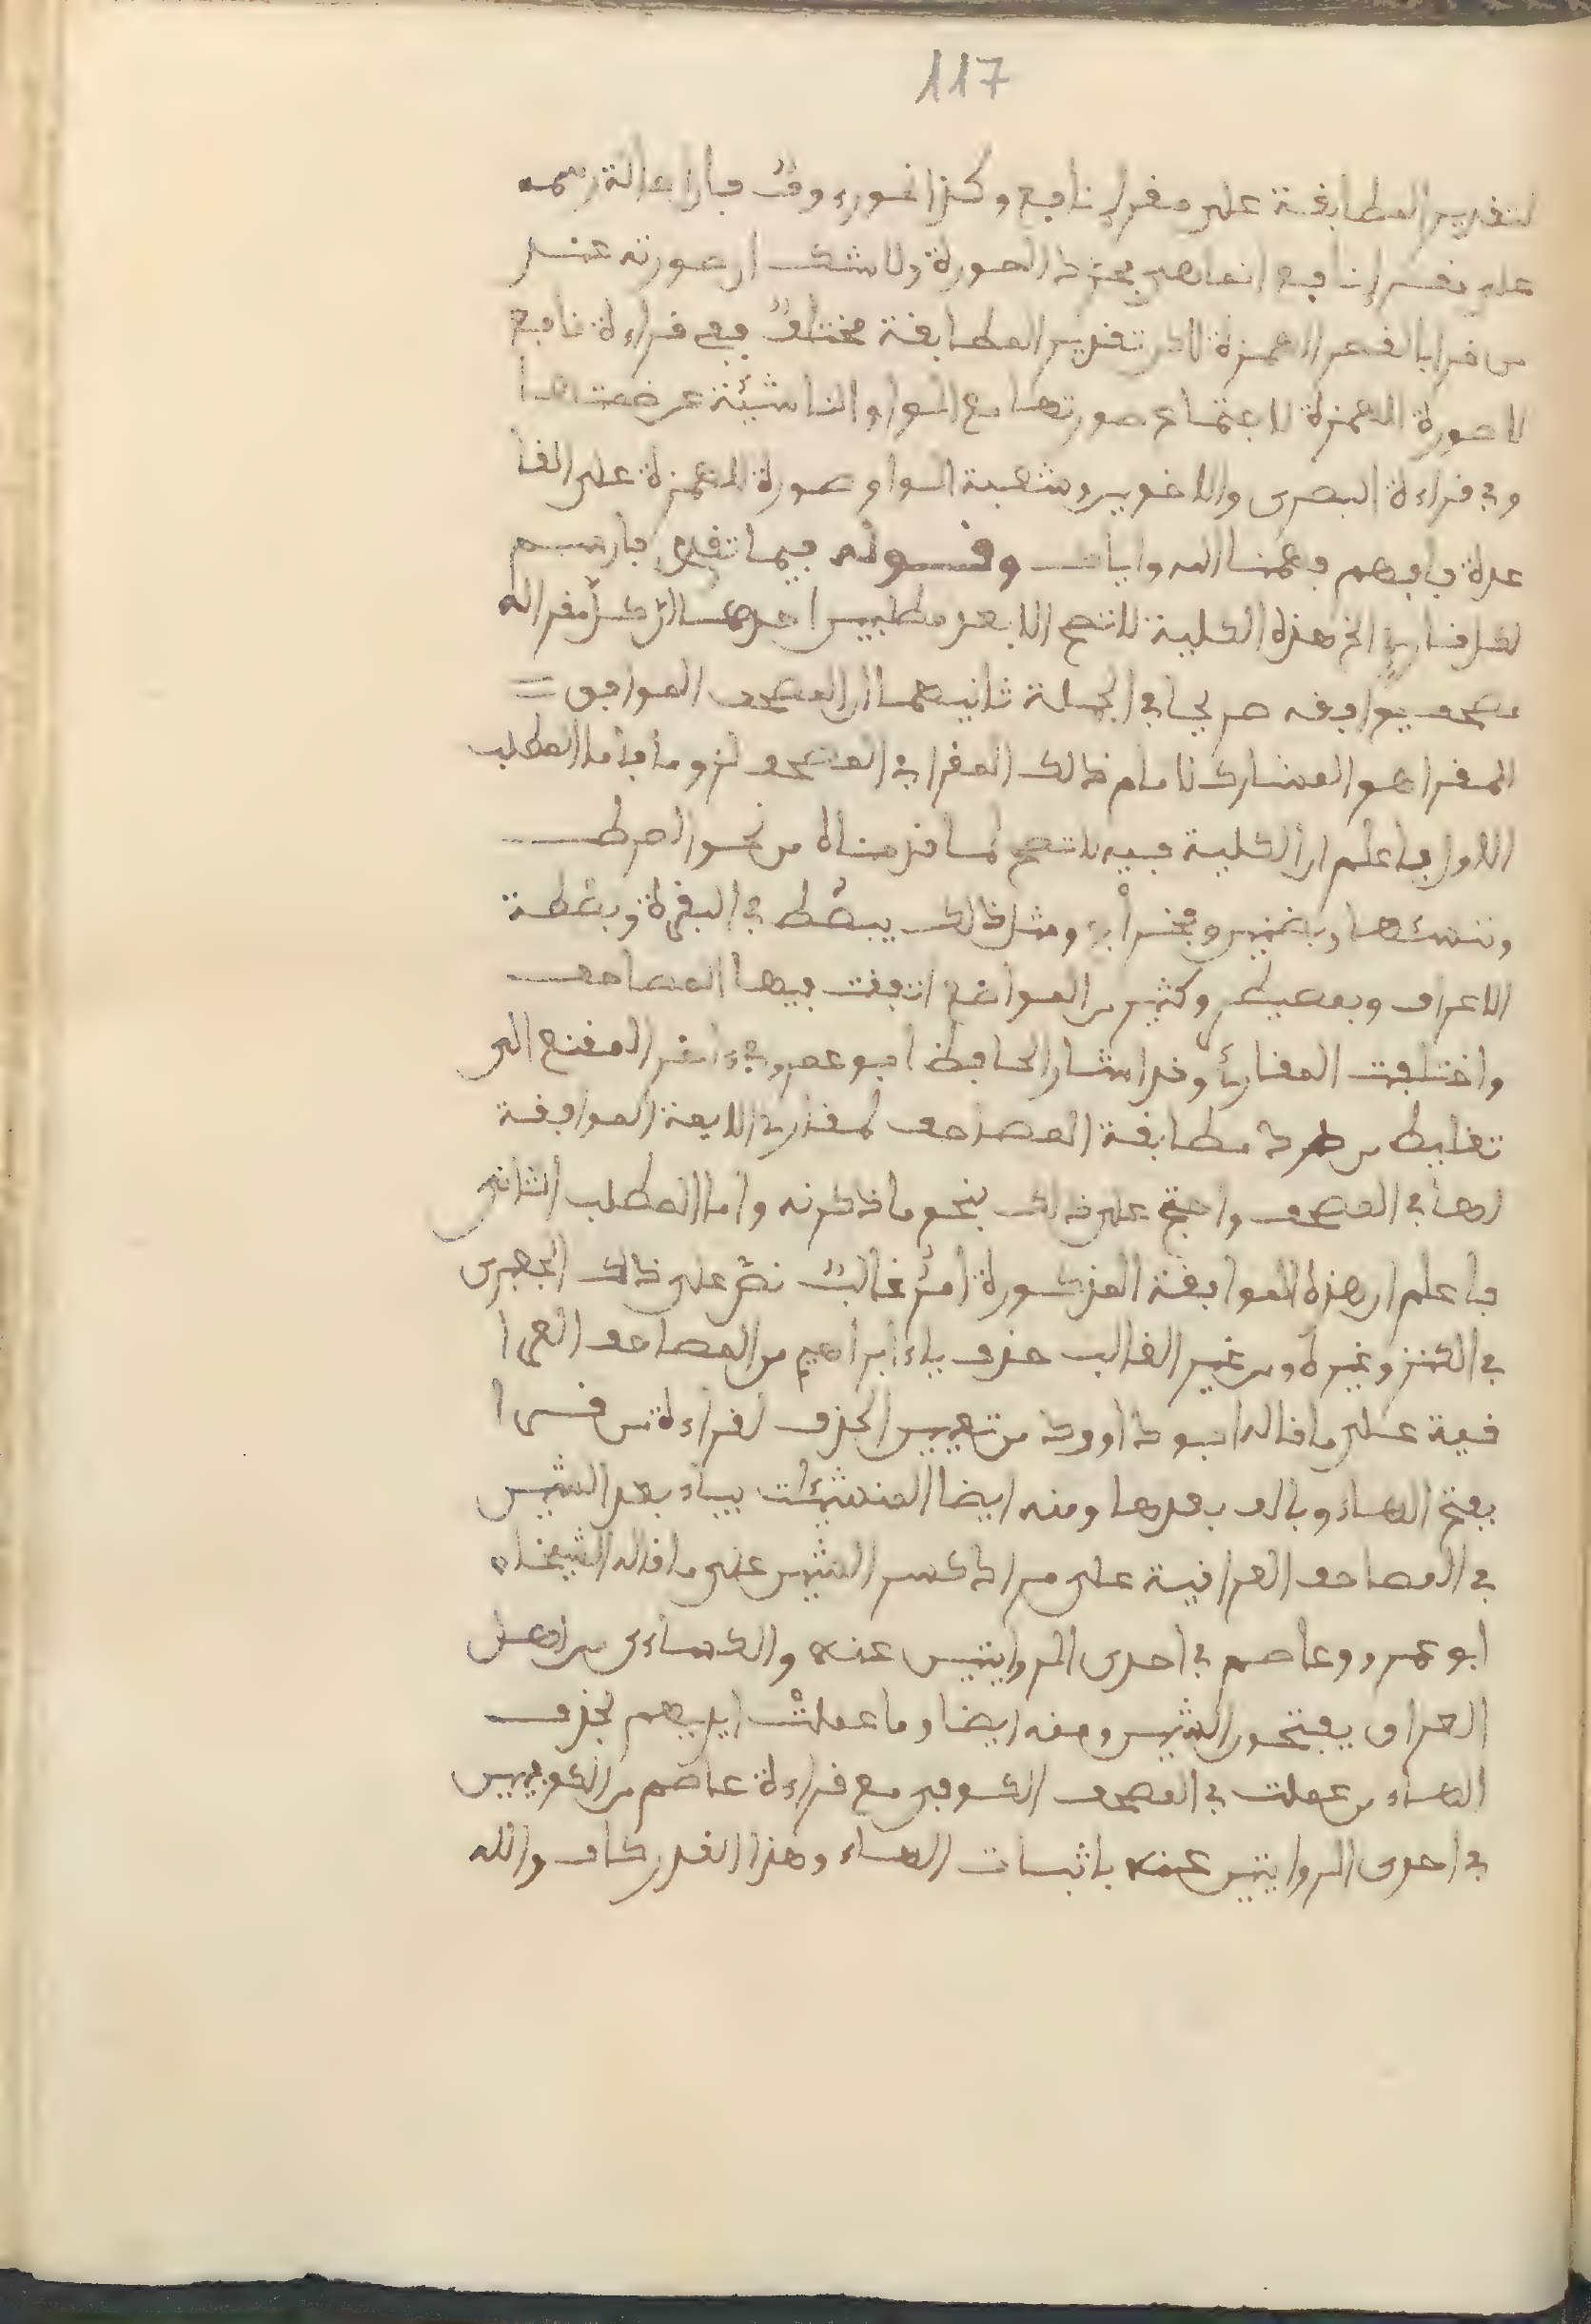 117
لتقدير المطابقة على مقرإ نافع وكذا نحو رءوف فإن إحالة رسمه
على مقرإ نافع إنما هي بهذه الصورة ولا شك أن صورته عند
من قرأ بالقصر الهمزة لاكن تقدير المطابقة مختلف ففي قراءة نافع
لا صورة للهمزة لاجتماع صورتها مع الواو الناشئة عن ضمتها
وفي قراءة البصري والاخوين وشعبة الواو صورة للهمزة على القا
عدة فافهم فهمنا الله واياك وقوله فيما تقدم فارسم
لكل قارئ الخ هذه الكلية لا تصح إلا بعد مطلبين احدهما ان كل مقرإ له
مصحف يوافقه صريحا في الجملة ثانيهما ان المصحف الموافق =
للمقرإ هو المشارك لامام ذالك المقرإ في المصحف لزوما فأما المطلب
الاول فاعلم أن الكلية فيه لا تصح لما قدمناه من نحو الصرط
وننسئها وبضنين ومجرىها ومثل ذالك يبصط في البقرة وبصطة
الاعراف وبمصيطر وكثير من المواضع اتفقت فيها المصاحف
واختلفت المقارئ وقد اشار الحافظ ابو عمرو في ءاخر المقنع الى
تغليط من طرد مطابقة المصاحف لمقارئ الايمة الموافقة
لها في المصحف واحتج على ذلك بنحو ما ذكرته واما المطلب الثاني
فاعلم ان هذه الموافقة المذكورة امر غالب نص على ذلك الجعبري
في الكنز وغيره ومن غير الغالب حذف ياء ابراهيم من المصاحف العرا
قية على ما قاله ابو داوود من تعيين الحذف لقراءة من قرا
بفتح الهاء وبالف بعدها ومنه ايضا المنشئات بياء بعد الشين
في المصاحف العراقية على مراد كسر الشين على ما قاله الشيخان
ابو عمرو وعاصم في احدى الروايتين عنه والكساءي من اهل
العراق يفتحون الشين ومنه ايضا وما عملت ايديهم بحذف
الهاء من عملت في المصحف الكوفي مع قراءة عاصم من الكوفيين
في احدى الروايتين عنه باثبات الهاء وهذا القدر كاف والله